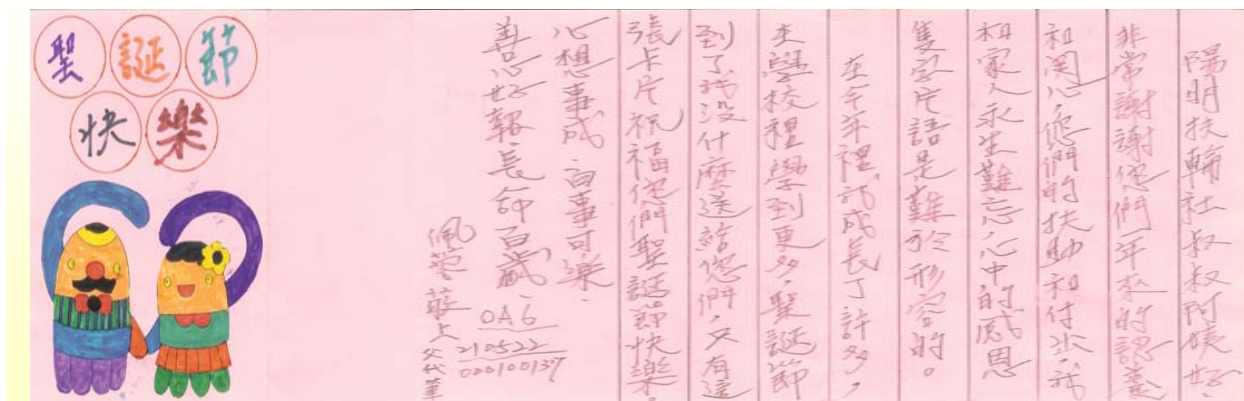 陽明扶輪社叔叔阿姨好、
非常謝謝您們年來的認養
和関心,您們的扶助和付出,我
和家人永生難忘,心中的感恩
隻字片語是難於形容的。
在今年裡,我成長了許多,
在學校裡學到更多,聖誕節
到了我沒什麼送給您們,只有這
張卡片祝福您們聖誕節快樂。
心想事成、百事可樂、
善心好報、長命百歲、
佩 上
父代筆
OA6
210522
000100137
聖誕節
快樂